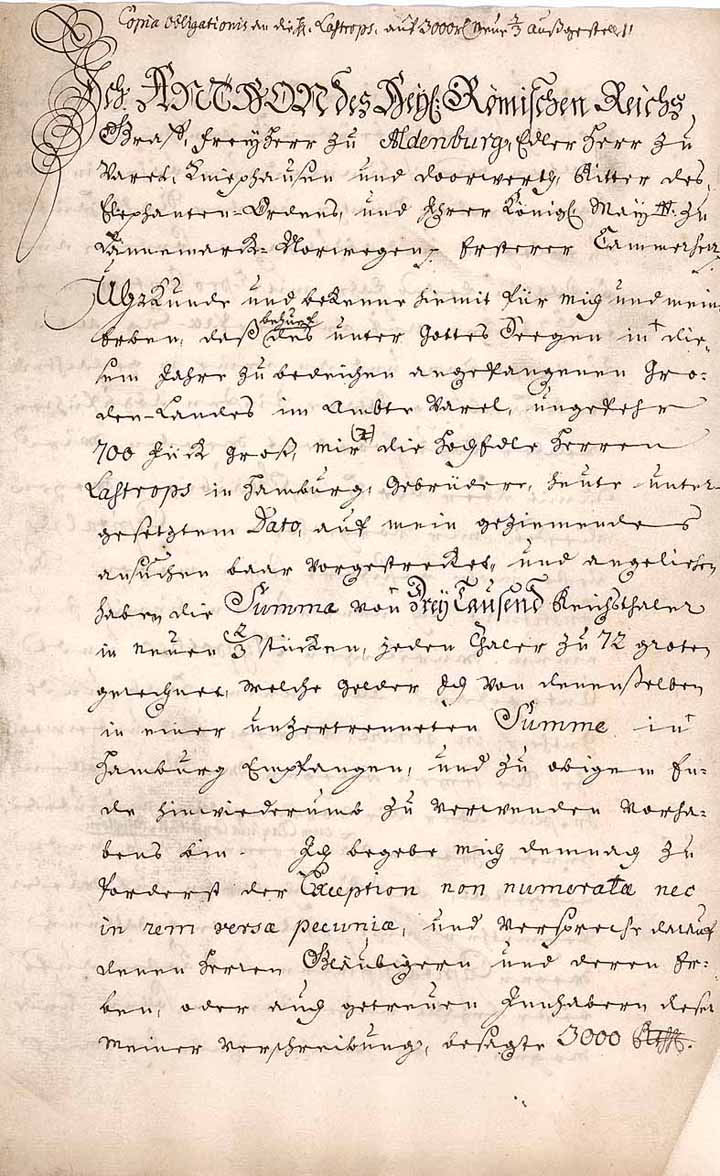 Copia obligationis an die H. Lastrops, auf 3000 rl neue 2/3 außgestellt
Ich ANTHON des Heyl: Römischen Reichs
Graff, Freyherr zu Aldenburg, Edler Herr zu
Varel, Kniephausen und Doorwerth, Ritter des
Elephanten-Ordens, und Ihrer Königl. Mayttt. zu
Dännemarck-Norwegen, Ersterer Cammerherr
Uhrkunde und bekenne hiemit für mich und mein
Erben, daß behuef des unter Gottes Seegen in die-
sem Jahre zu bedeichen angefangenen Gro-
den-Landes im Ambte Varel, ungefehr
700 Jück groß, mir die HochEdle Herren
Lastrops in Hamburg, Gebrüdere, heute unter-
gesetztem Dato, auf mein geziemendes
ansuchen baar vorgestrecket, und angeliehen
haben die Summa von DreyTausend Reichsthaler
in neuen 2/3 stücken, jeden Thaler zu 72 groten
gerechnet, welche Gelder Ich von denenselben
in einer unzertrenneten Summe in
Hamburg Empfangen, und zu obigem En-
de hinwiederumb zu verwenden Vorha-
bens bin. Ich begebe mich demnach zu
forderst der Exception non numeratæ nec
in rem versæ pecuniæ, und verspreche darauf
denen Herren Gläubigern und deren Er-
ben, oder auch getreuen Innhabern dieser
meiner verschreibung, besagte 3000 Rthlr.